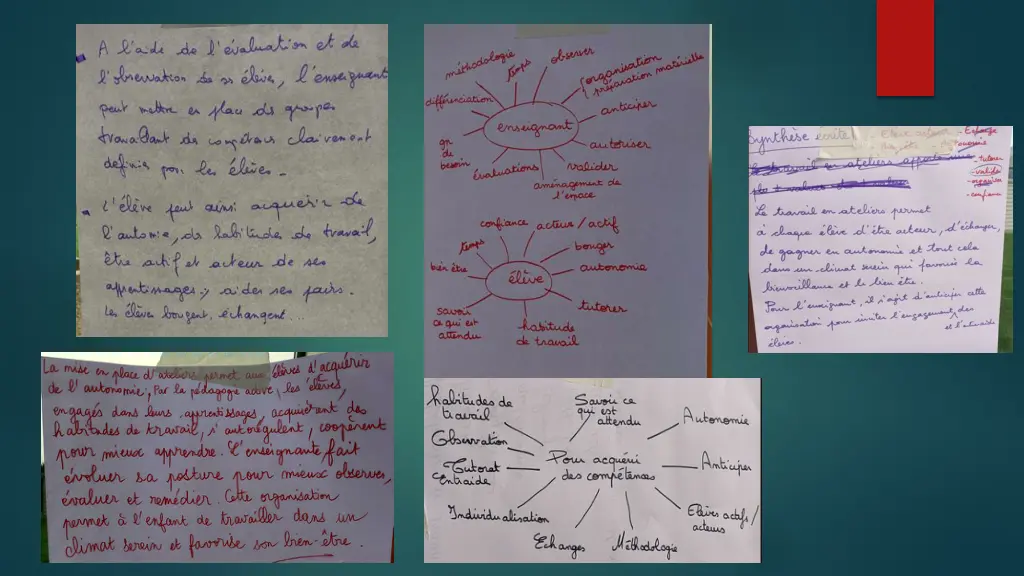 A l'aide de l'évaluation et de
l'observation de ses élèves, l'enseignant
peut mettre en place des groupes
travaillant des compétences clairement
définies pour les élèves.
L'élève peut ainsi acquérir de
l'autonomie, des habitudes de travail,
être actif et acteur de ses
apprentissages, aider ses pairs.
Les élèves bougent, échangent...
La mise en place d'ateliers permet aux élèves d'acquérir
de l'autonomie. Par la pédagogie active, les élèves,
engagés dans leurs apprentissages, acquièrent des
habitudes de travail, s'autorégulent, coopèrent
pour mieux apprendre. L'enseignante fait
évoluer sa posture pour mieux observer,
évaluer et remédier. Cette organisation
permet à l'enfant de travailler dans un
climat serein et favorise son bien-être.
enseignant
méthodologie
temps
observer
organisation
préparation matérielle
anticiper
autoriser
valider
aménagement de
l'espace
évaluations
gn
de
besoin
différenciation
élève
confiance
acteur / actif
bouger
autonomie
tutorer
habitude
de travail
savoir
ce qui est
attendu
bien être
temps
Pour acquérir
des compétences
habitudes de
travail
Savoir ce
qui est
attendu
Autonomie
Anticiper
Elèves actifs /
acteurs
Méthodologie
Echanges
Individualisation
Tutorat
Entraide
Observation
Synthèse écrite
- tutorer
- valider
- organiser
- confiance
Le travail en ateliers permet
à chaque élève d'être acteur, d'échanger,
de gagner en autonomie et tout cela
dans un climat serein qui favorise la
bienveillance et le bien être.
Pour l'enseignant, il s'agit d'anticiper cette
organisation pour inviter l'engagement des
et l'entraide
élèves.